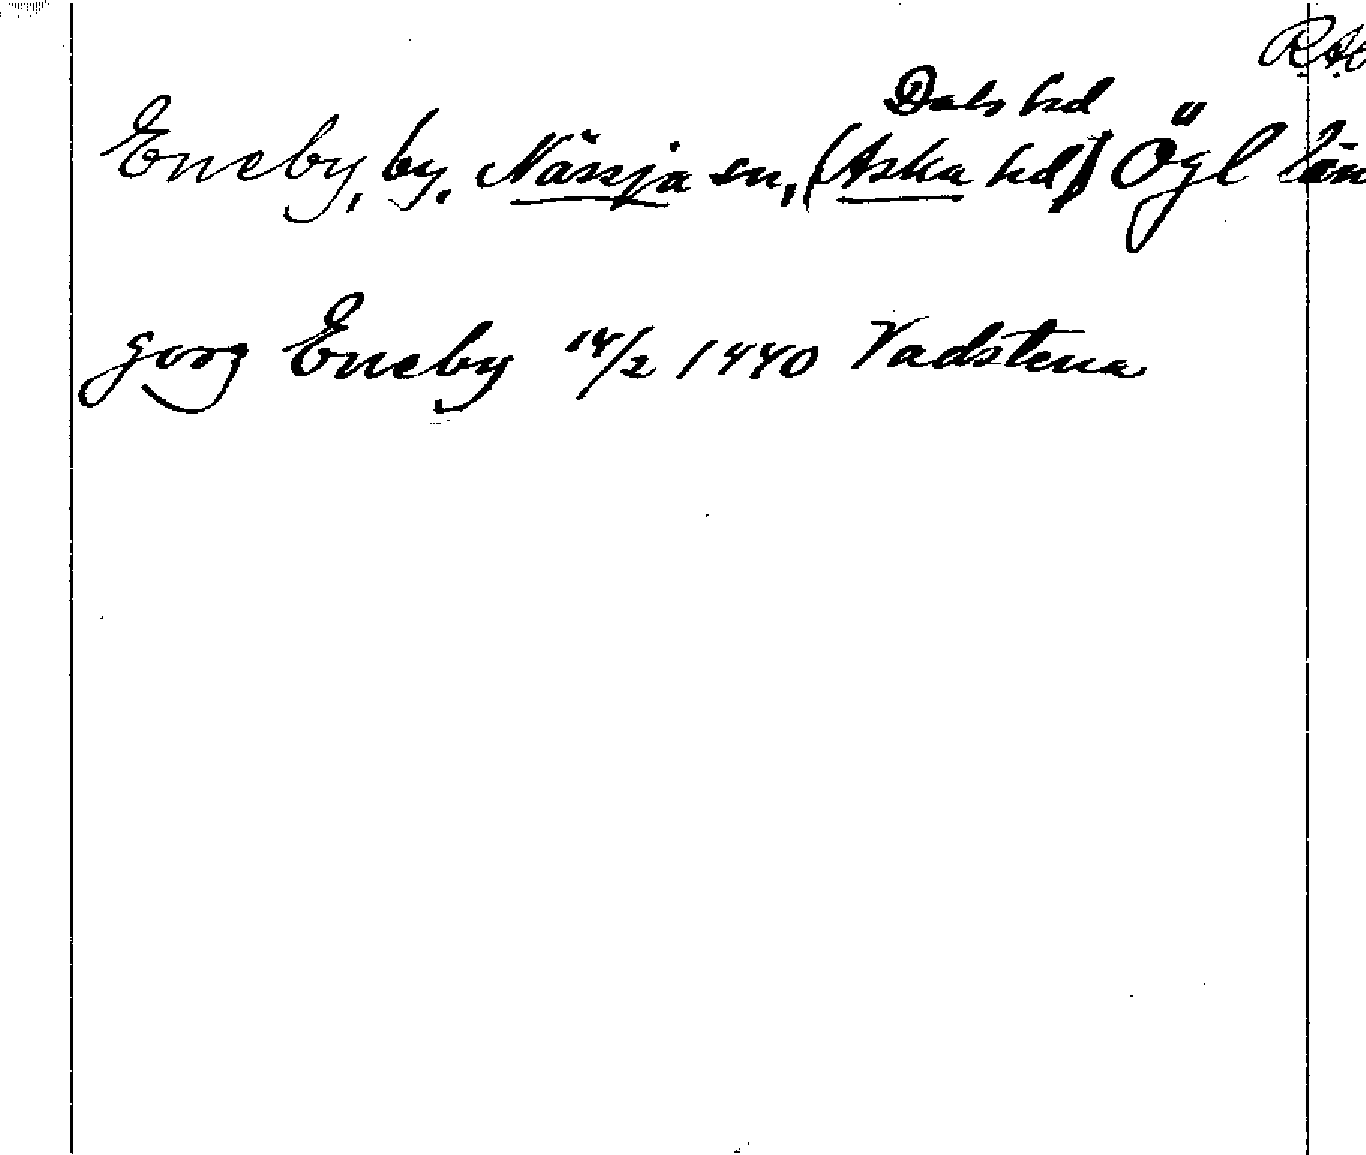 RAO
Dals hd
Eneby, by. Nässja sn, (Aska hd) Ögl län
Jorg Eneby 14/2 1440 Vadstena